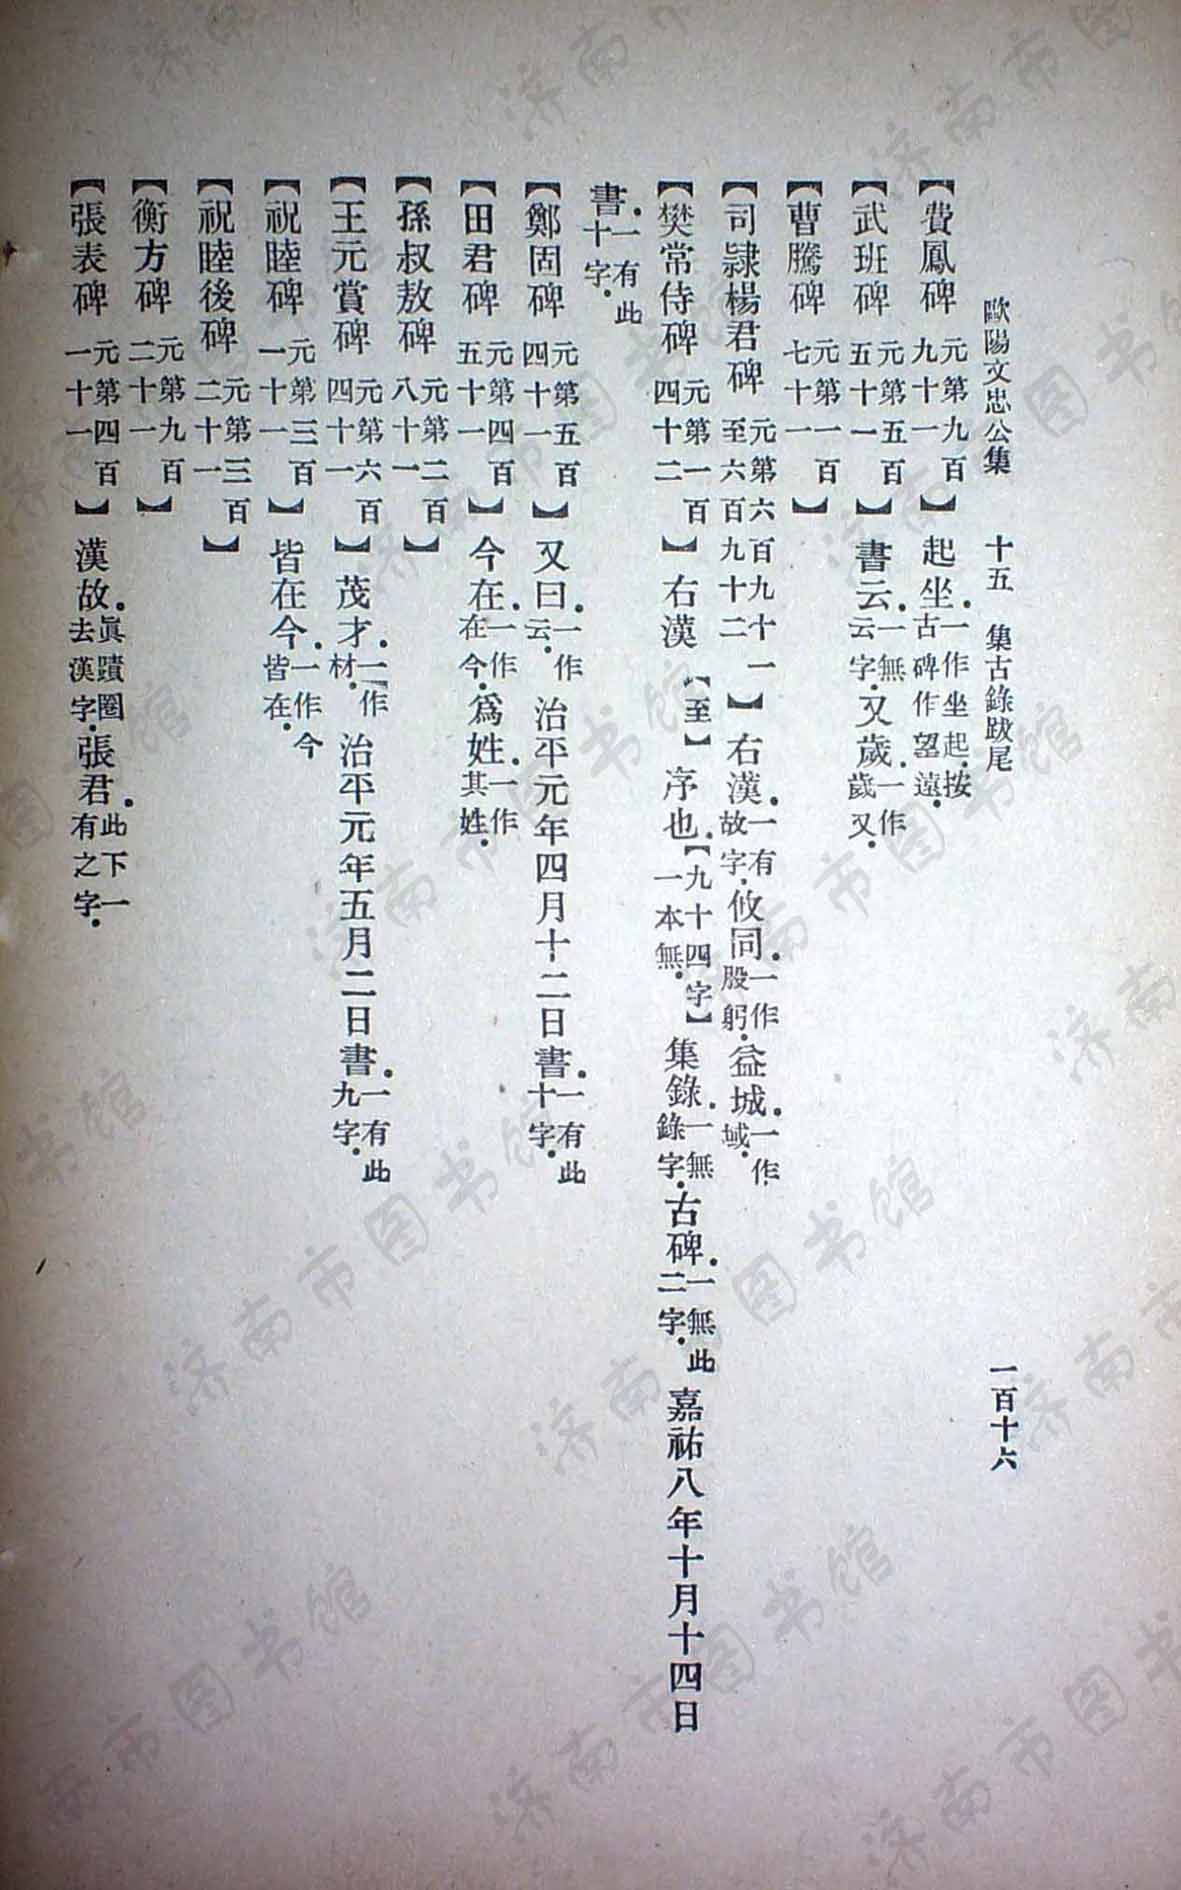 歐陽文忠公集　十五　集古錄跋尾　一百十六
【費鳳碑元第九百九十一】起坐.一作坐起.按古碑作望遠.
【武班碑元第五百五十一】書云.一無云字.又歲.一作歲又.
【曹騰碑元第一百七十一】
【司隸楊君碑元第六百九十一至六百九十二】右漢.一有故字.攸同.一作股躬.益城.一作域.
【樊常侍碑元第一百四十二】右漢【至】序也.【九十四字】一本無.集錄.一無錄字.古碑.一無此二字.嘉祐八年十月十四日
書.一有此十字.
【鄭固碑元第五百四十一】又曰.一作云.治平元年四月十二日書.一有此十字.
【田君碑元第四百五十一】今在.一作在今.爲姓.一作其姓.
【孫叔敖碑元第二百八十一】
【王元賞碑元第六百四十一】茂才.一作材.治平元年五月二日書.一有此九字.
【祝睦碑元第三百一十一】皆在今.一作今皆在.
【祝睦後碑元第三百二十一】
【衡方碑元第九百二十一】
【張表碑元第四百一十一】漢故.眞蹟圈去漢字.張君.此下一有之字.